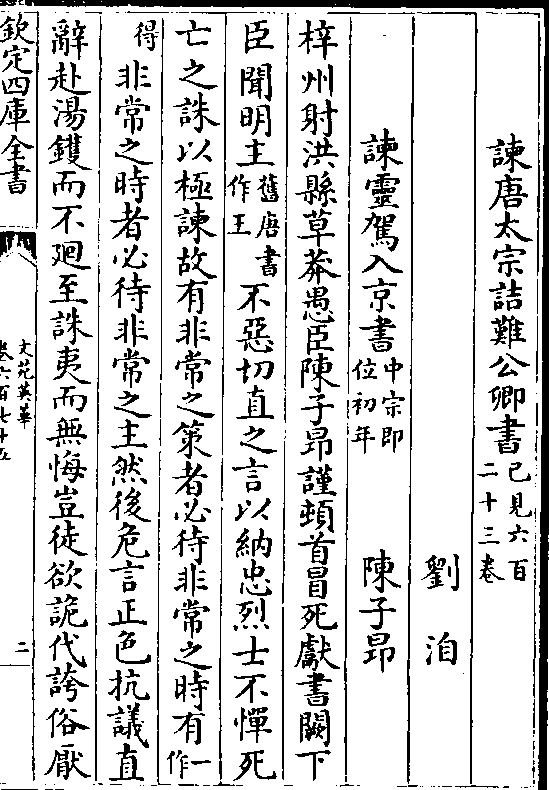 諫唐太宗詰難公卿書已見六百二十三卷
劉洎
諫靈駕入京書中宗即位初年 陳子昂
梓州射洪縣草莽愚臣陳子昂謹頓首冒死獻書闕下
臣聞明主舊唐書作王不惡切直之言以納忠烈士不憚死
亡之誅以極諫故有非常之策者必待非常之時有一作
得非常之時者必待非常之主然後危言正色抗議直
辭赴湯鑊而不廻至誅夷而無悔豈徒欲詭代誇俗厭
欽定四庫全書
文苑英華
卷六百七十五
二